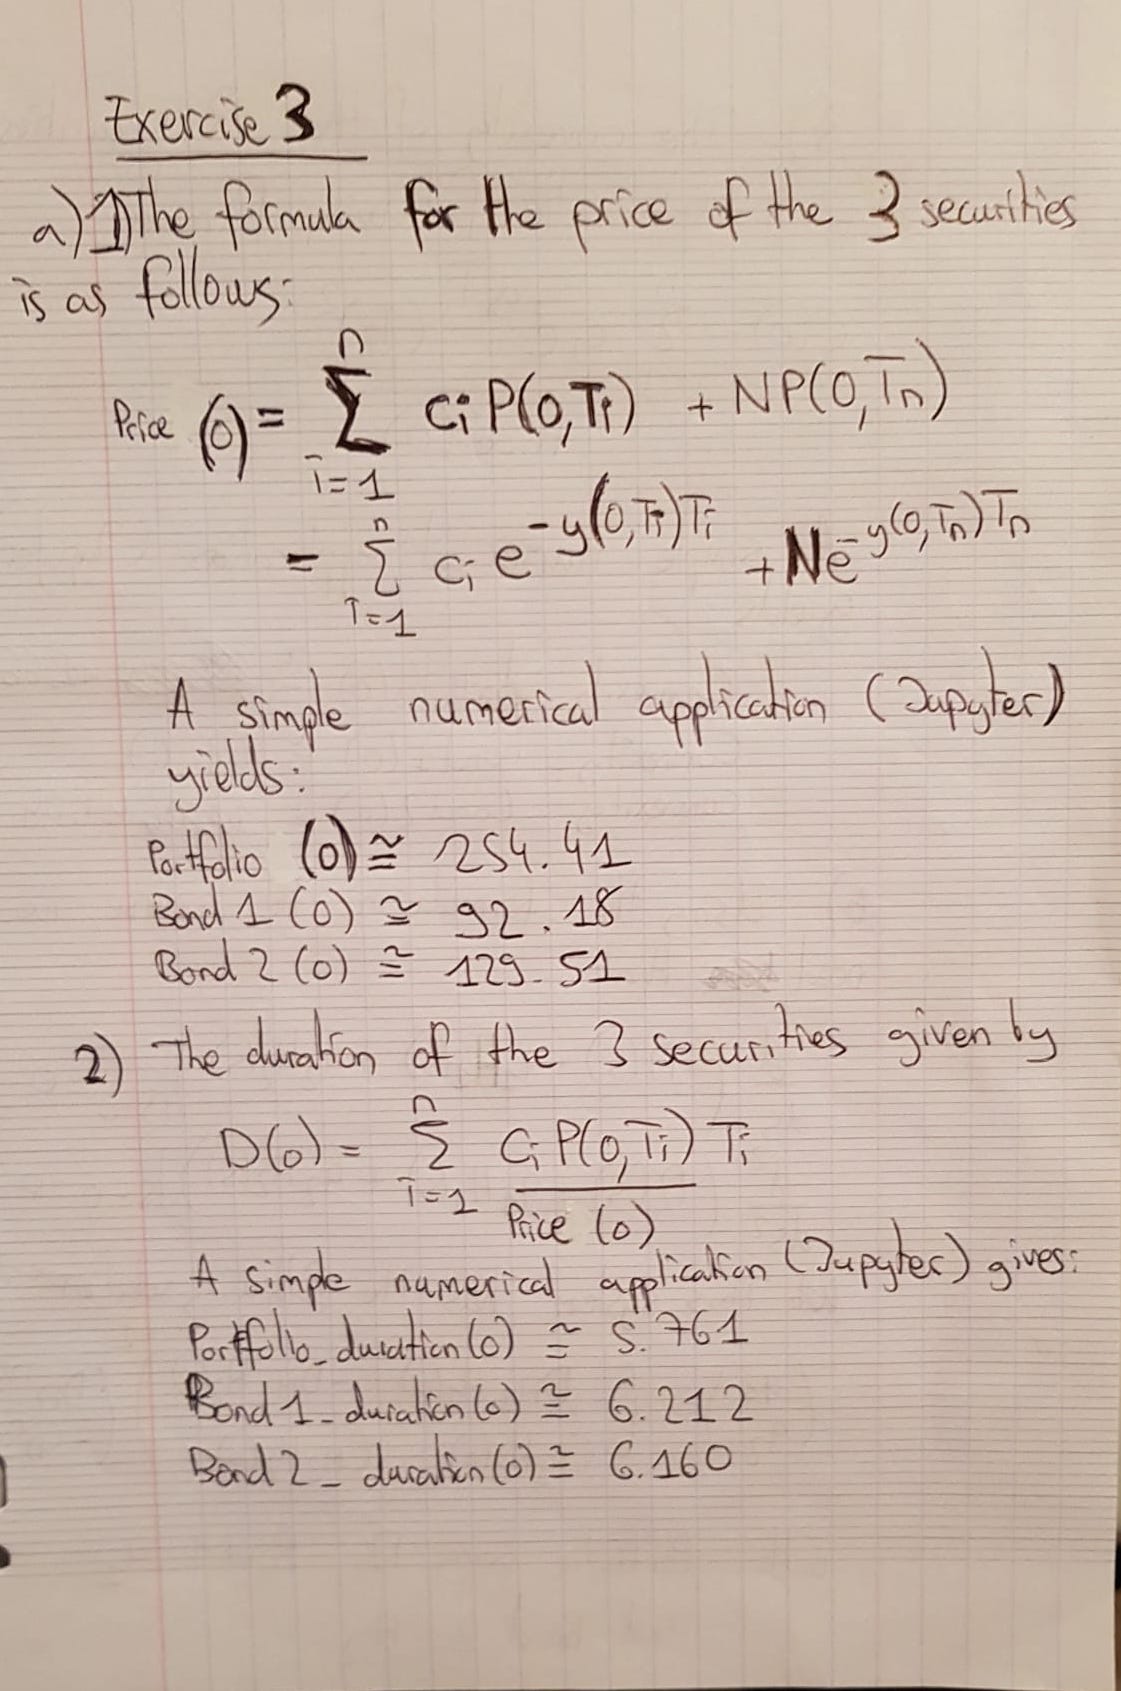 Exercise 3
a) 1) The formula for the price of the 3 securities
is as follows:
Price (0) = ∑_{i=1}^{n} c_i P(0,T_i) + NP(0,T_n)
= ∑_{i=1}^{n} c_i e^{-y(0,T_i)T_i} + Ne^{-y(0,T_n)T_n}
A simple numerical application (Jupyter)
yields:
Portfolio (0) ≅ 254.41
Bond 1 (0) ≅ 92.18
Bond 2 (0) ≅ 129.51
2) The duration of the 3 securities given by
D(0) = ∑_{i=1}^{n} \frac{C_i P(0,T_i)}{Price (0)} T_i
A simple numerical application (Jupyter) gives:
Portfolio_duration(0) ≅ 5.761
Bond 1_duration(0) ≅ 6.212
Bond 2_duration(0) ≅ 6.160